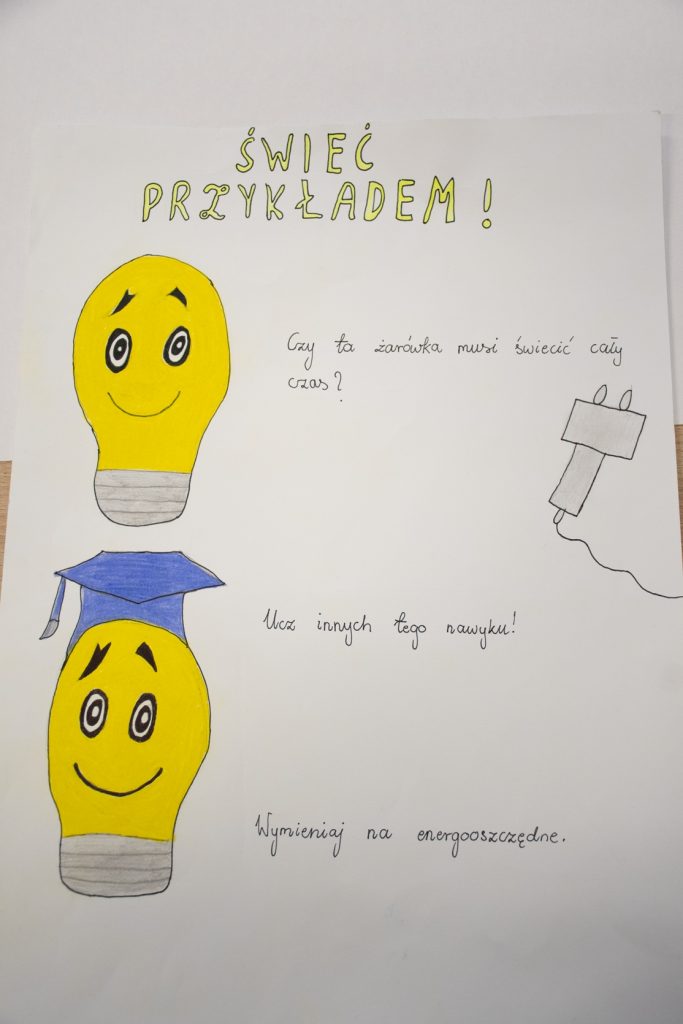 ŚWIEĆ
PRZYKŁADEM!
Czy ta żarówka musi świecić cały
czas?
Ucz innych tego nawyku!
Wymieniaj na energooszczędne.